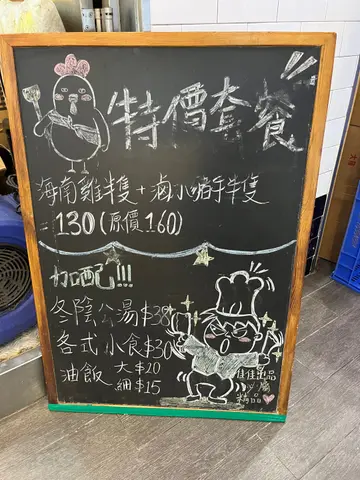 特價套餐
海南雞半隻+滷水豬手半隻
=130(原價160)
加配!!!
冬陰公湯$38
各式小食$30
油飯 大$20
細$15
佳佳出品
必屬
精品